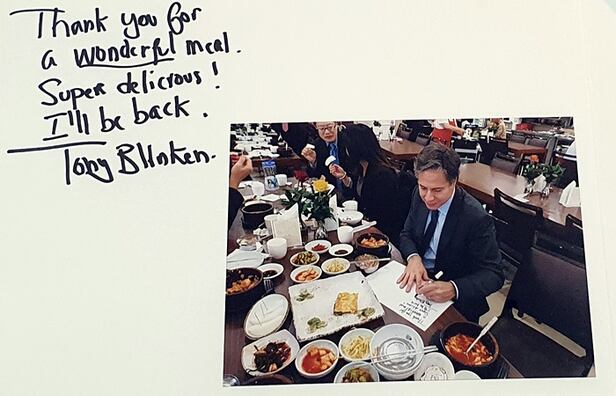 Thank you for
a wonderful meal.
Super delicious!
I'll be back.
Tony Blinken.